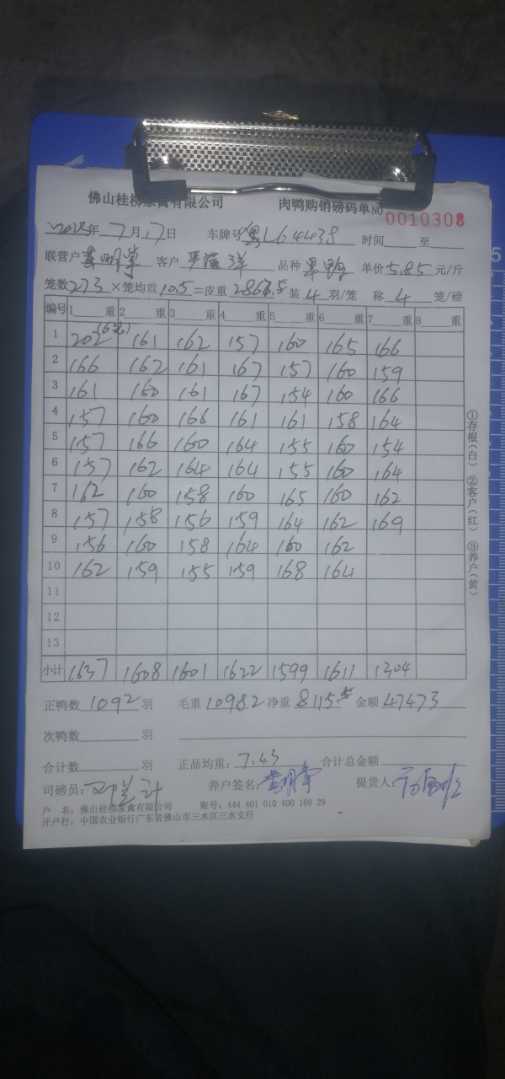 佛山桂柳家禽有限公司 肉鸭购销磅码单 0010308
年7月17日 车牌号粤L64438 时间 至
联营户 客户 品种 单价5.85元/斤
笼数273×笼均重10.5=皮重2866.5装4羽/笼 称4笼/磅
编号 1 重 2 重 3 重 4 重 5 重 6 重 7 重 8 重
1 202(5笼) 161 162 157 160 165 166
2 166 162 161 167 157 160 159
3 161 160 161 167 154 160 166
4 157 160 166 161 161 158 164
5 157 166 160 164 155 160 154
6 157 162 164 164 155 160 164
7 162 160 158 160 165 160 162
8 157 158 156 159 164 162 169
9 156 160 158 164 160 162
10 162 159 155 159 168 164
11
12
13
小计 1637 1608 1601 1622 1599 1611 1304
正鸭数1092羽 毛重10982净重8115.5金额47473
次鸭数 羽
合计数 羽 正品均重:7.43 合计总金额
司磅员: 养户签名: 提货人:
户 名:佛山桂柳家禽有限公司 账号:444 601 010 400 160 29
开户行:中国农业银行广东省佛山市三水区三水支行
①存根(白) ②客户(红) ③养户(黄)